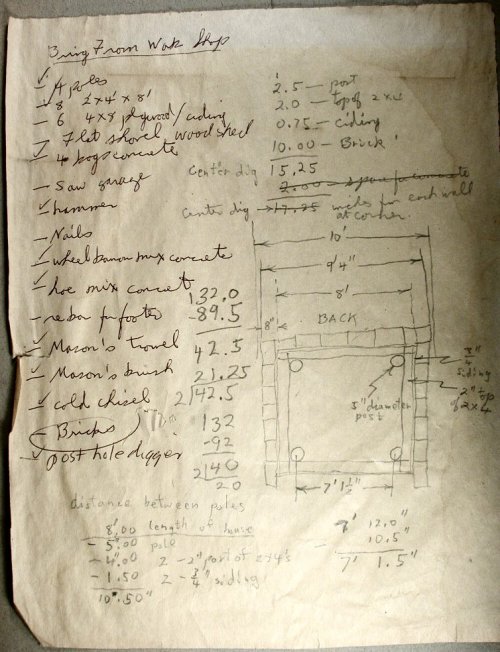 Bring From Work Shop
✓ 4 poles
- 8 2"x4" x 8'
- 6 4x8 plywood/ciding
✓ Flat shovel woodshed
✓ 4 bags concrete
- Saw garage
✓ hammer
- Nails
✓ wheelbarrow mix concrete
✓ hoe mix concret
- rebar for footer
✓ Mason's trowel
✓ Mason's brush
✓ cold chisel
Bricks
✓ post hole digger
2.5 — post
2.0 — top of 2x4
0.75 — ciding
10.00 — Brick
15.25
center dig
center dig → 17.25 inches for end wall
at corner.
132.0
-89.5
42.5
21.25
2|42.5
132
-92
2|40
20
10'
9'4"
8'
8"
BACK
3/4"
siding
2" top
of 2x4
5" diameter
post
7' 1½"
distance between poles
8'.00 length of house
- 5".00 pole
- 4".00 2 - 2" part of 2x4's
- 1.50 2 - 3/4" siding
10".50"
7' 12.0"
- 10.5"
7' 1.5"